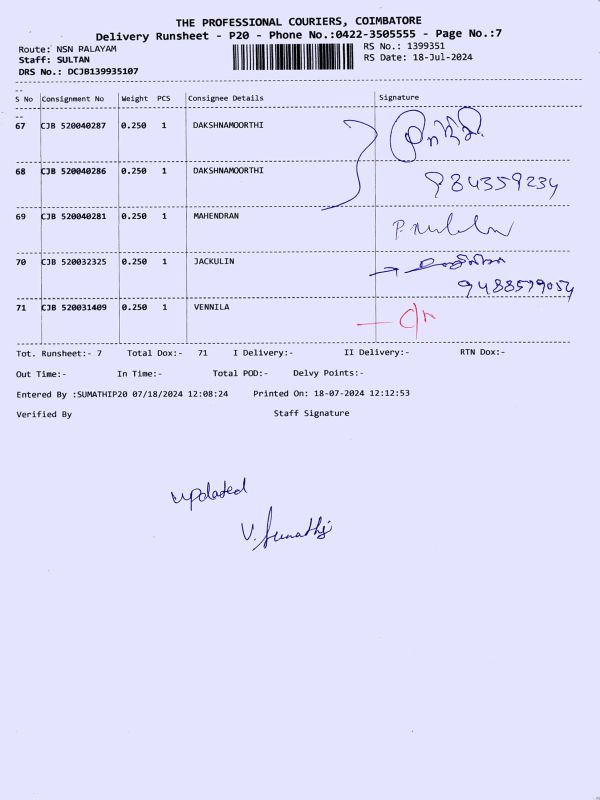 THE PROFESSIONAL COURIERS, COIMBATORE
Delivery Runsheet - P20 - Phone No.:0422-3505555 - Page No.:7
Route: NSN PALAYAM
RS No.: 1399351
Staff: SULTAN
RS Date: 18-Jul-2024
DRS No.: DCJB139935107
S No Consignment No Weight PCS Consignee Details Signature
67 CJB 520040287 0.250 1 DAKSHNAMOORTHI
68 CJB 520040286 0.250 1 DAKSHNAMOORTHI
984359234
69 CJB 520040281 0.250 1 MAHENDRAN
70 CJB 520032325 0.250 1 JACKULIN
9488579054
71 CJB 520031409 0.250 1 VENNILA
Tot. Runsheet:- 7 Total Dox:- 71 I Delivery:- II Delivery:- RTN Dox:-
Out Time:- In Time:- Total POD:- Delvy Points:-
Entered By :SUMATHIP20 07/18/2024 12:08:24 Printed On: 18-07-2024 12:12:53
Verified By Staff Signature
updated
V. Sumathi